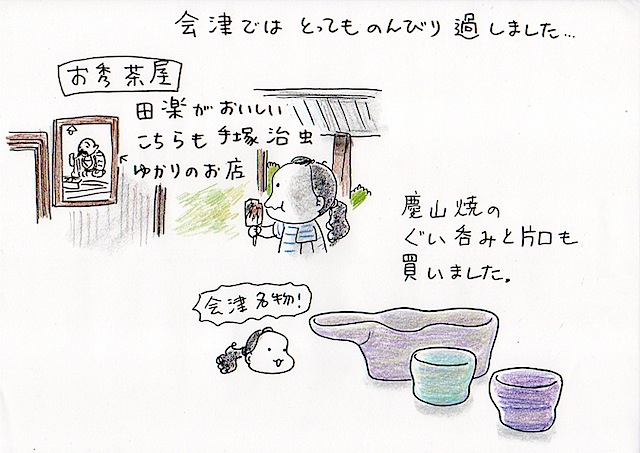 会津では とってものんびり 過しました…
お秀茶屋
田楽がおいしい
こちらも手塚治虫
ゆかりのお店
慶山焼の
ぐい呑みと片口も
買いました。
会津名物!